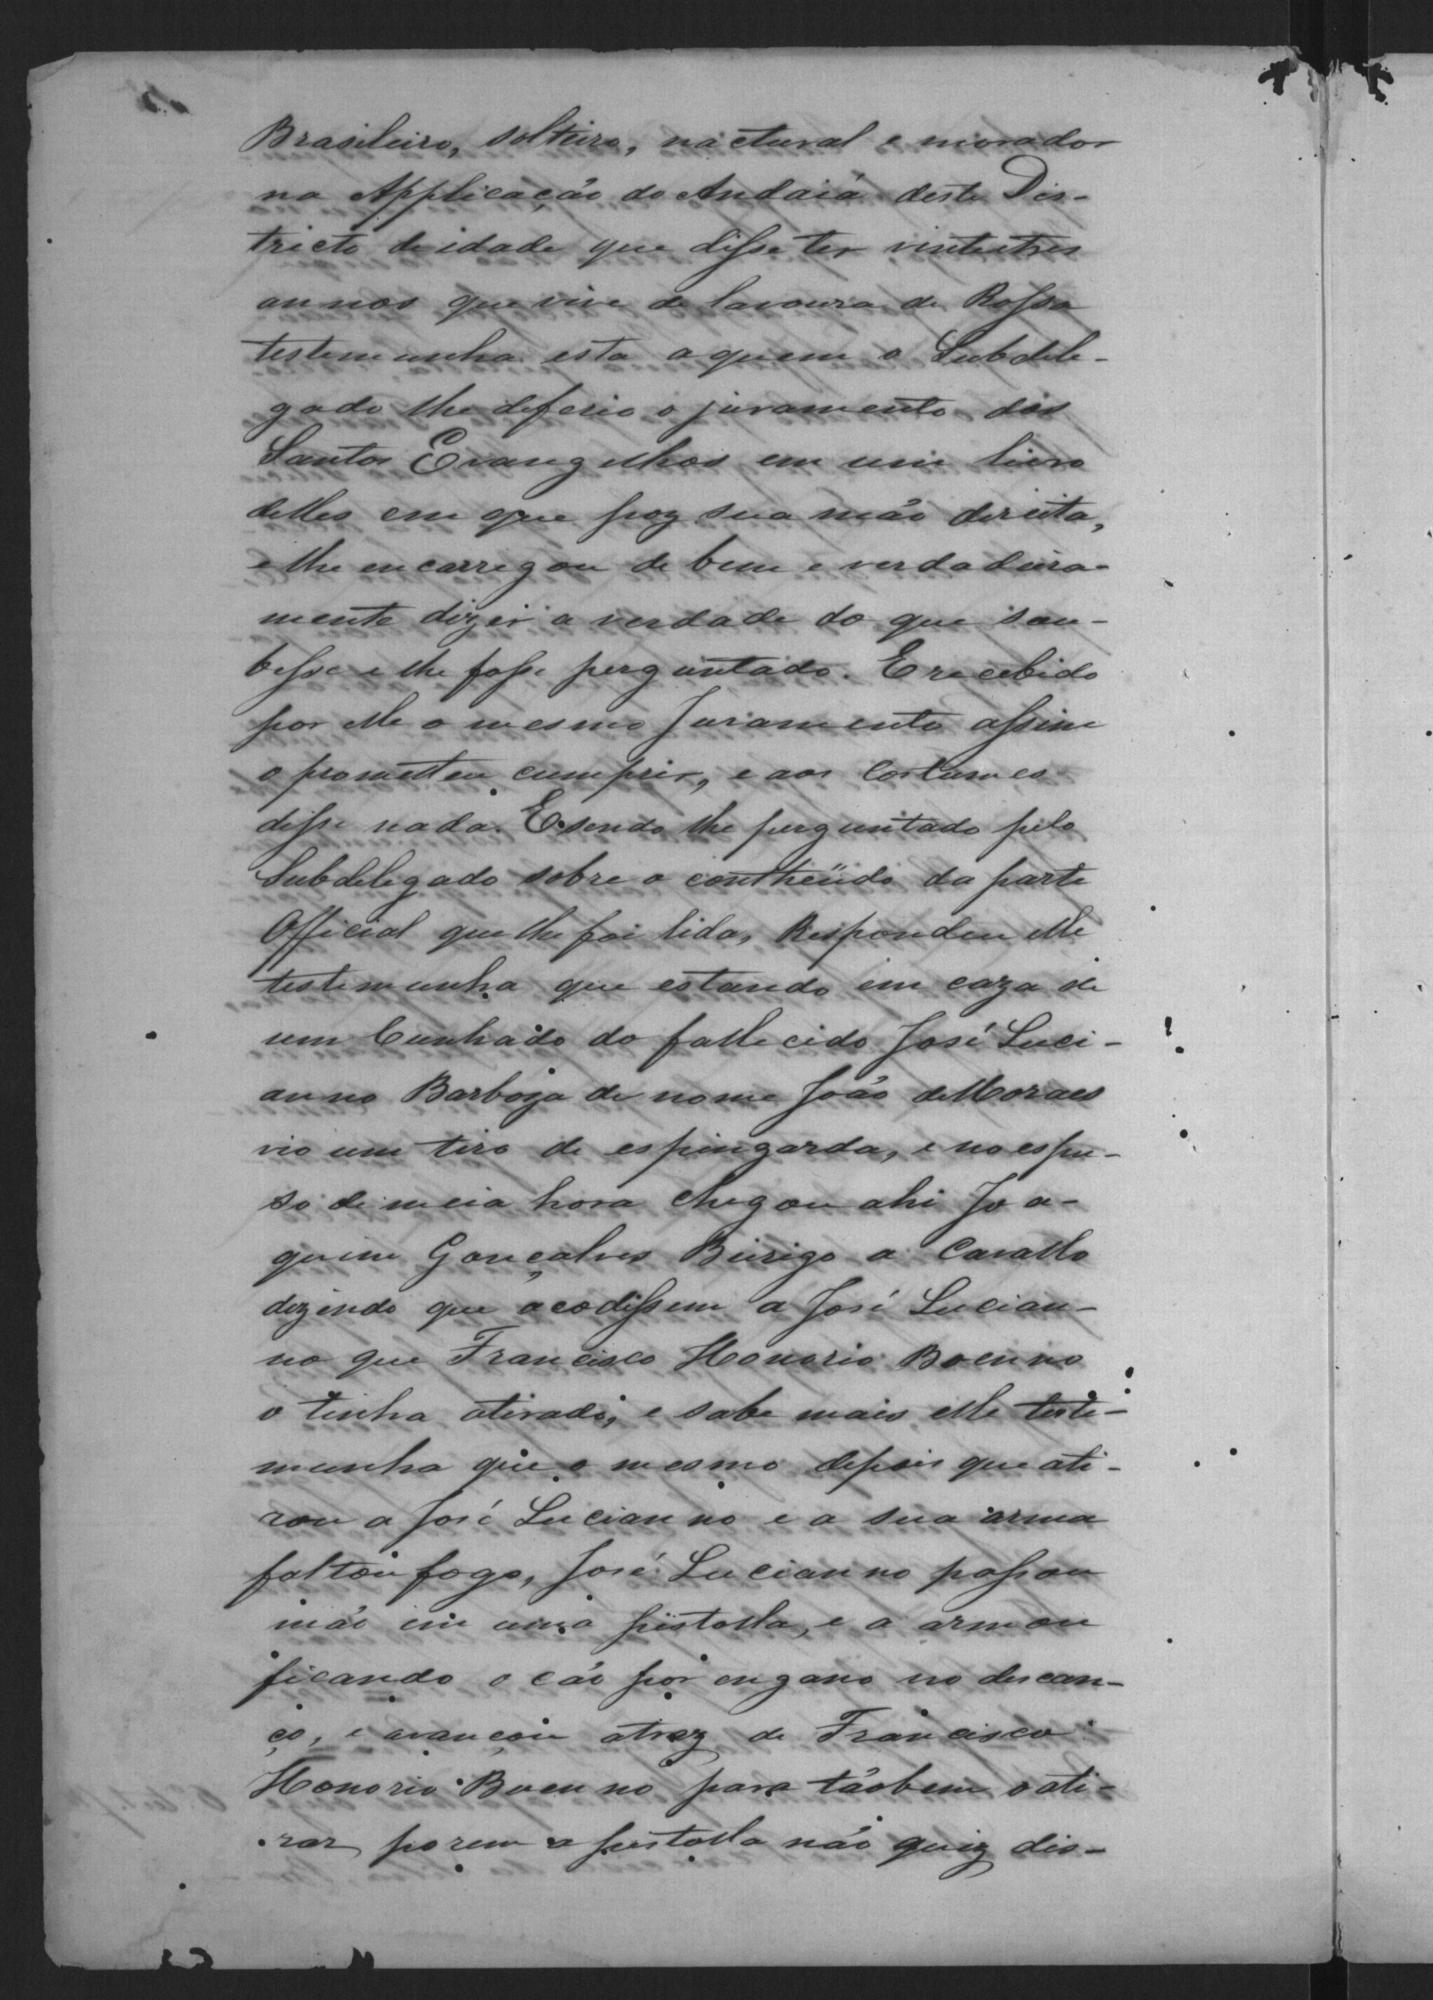 Brasileiro, solteiro, nactural e morador
na Applicação do Andaiá deste Dis-
tricto de idade que disse ter vinte e tres
annos que vive de lavoura de Rossa
testemunha esta a quem o Subdele-
gado lhe deferio o juramento dos
Santos Evangelhos em um livro
delles em que poz sua mão direita,
e lhe encarregou de bem e verdadeira-
mente dizer a verdade do que sou-
besse e lhe fosse perguntado. E recebido
por elle o mesmo Juramento assim
o prometteu cumprir, e aos Costumes
disse nada. E sendo lhe perguntado pelo
Subdelegado sobre o contheúdo da parte
Official que lhe foi lida, Respondeu elle
testemunha que estando em caza de
um Cunhado do fallecido José Luci-
anno Barboza de nome João de Moraes
vio um tiro de espingarda, e no espa-
so de meia hora chegou ahi Joa-
quim Gonçalves Búrigo a Cavallo
dizendo que acodissem a José Lucian-
no que Francisco Honorio Boenno
o tinha atirado, e sabe mais elle teste-
munha que o mesmo depois que ati-
rou a José Lucianno e a sua arma
faltou fogo, José Lucianno passou
mão em uma pistolla, e a armou
ficando o cão por engano no descan-
ço, e avançou atraz de Francisco
Honorio Buenno para tãobem o ati-
rar porem a pistolla não quiz dis-